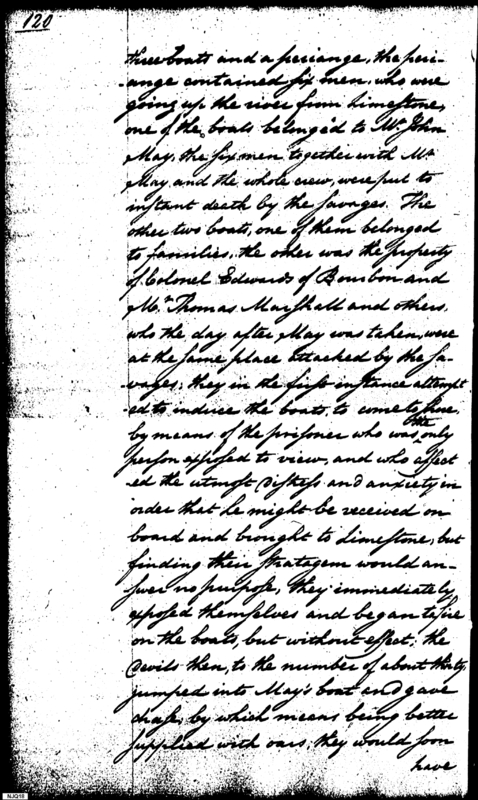 120
three boats and a periauge, the peri-
-auge contained six men, who were
going up the river from Limestone,
one of the boats belonged to Mr. John
May, the six men, together with Mr.
May and the whole crew, were put to
instant death by the savages. The
other two boats, one of them belonged
to families, the other was the property
of Colonel Edwards of Bourbon and
Mr. Thomas Marshall and others,
who the day after May was taken, were
at the same place attacked by the sa-
-vages; they in the first instance attempt
-ed to induce the boats, to come to shore,
by means of the prisoner who was the only
person exposed to view, and who affect
-ed the utmost distress and anxiety in
order that he might be received on
board and brought to Limestone, but
finding their stratagem would an-
swer no purpose, they immediately
exposed themselves and began to fire
on the boats, but without effect; the
Devils then, to the number of about thirty,
jumped into May's boat and gave
chase, by which means being better
supplied with oars, they would soon
have
NJQ18